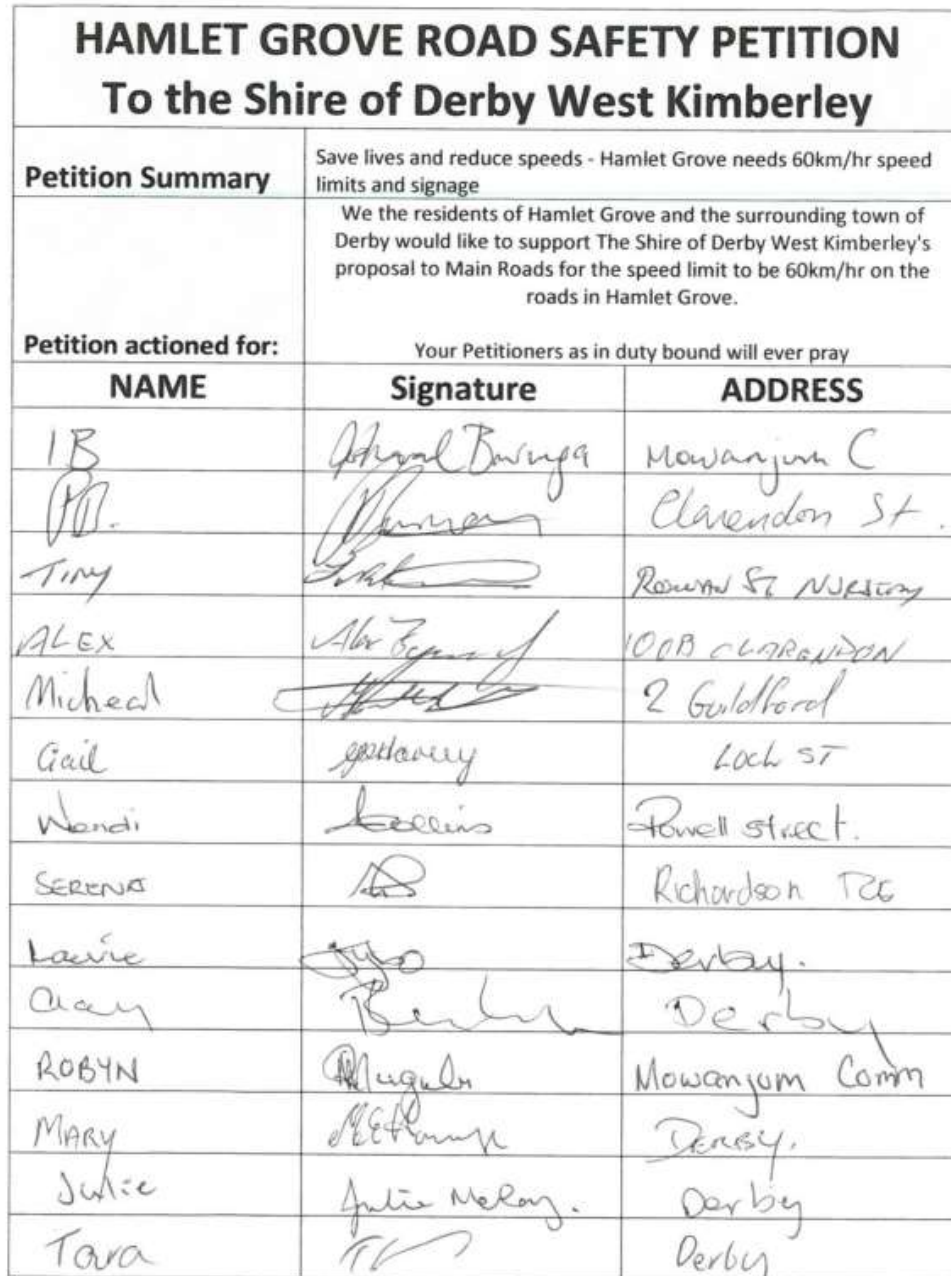 HAMLET GROVE ROAD SAFETY PETITION
To the Shire of Derby West Kimberley
Petition Summary
Save lives and reduce speeds - Hamlet Grove needs 60km/hr speed
limits and signage
We the residents of Hamlet Grove and the surrounding town of
Derby would like to support The Shire of Derby West Kimberley's
proposal to Main Roads for the speed limit to be 60km/hr on the
roads in Hamlet Grove.
Petition actioned for:
Your Petitioners as in duty bound will ever pray
NAME Signature ADDRESS
IB Mowanjum C
Clarendon St.
TINY Rowan St NURSERY
ALEX Alex 100B CLARENDON
Micheal 2 Guildford
Gail Loch ST
Wendi Collins Powell street.
SERENA Richardson TCE
Laurie Derby.
Derby
ROBYN Mowanjum Comm
MARY DERBY.
Julie Julie Derby
Tara Derby